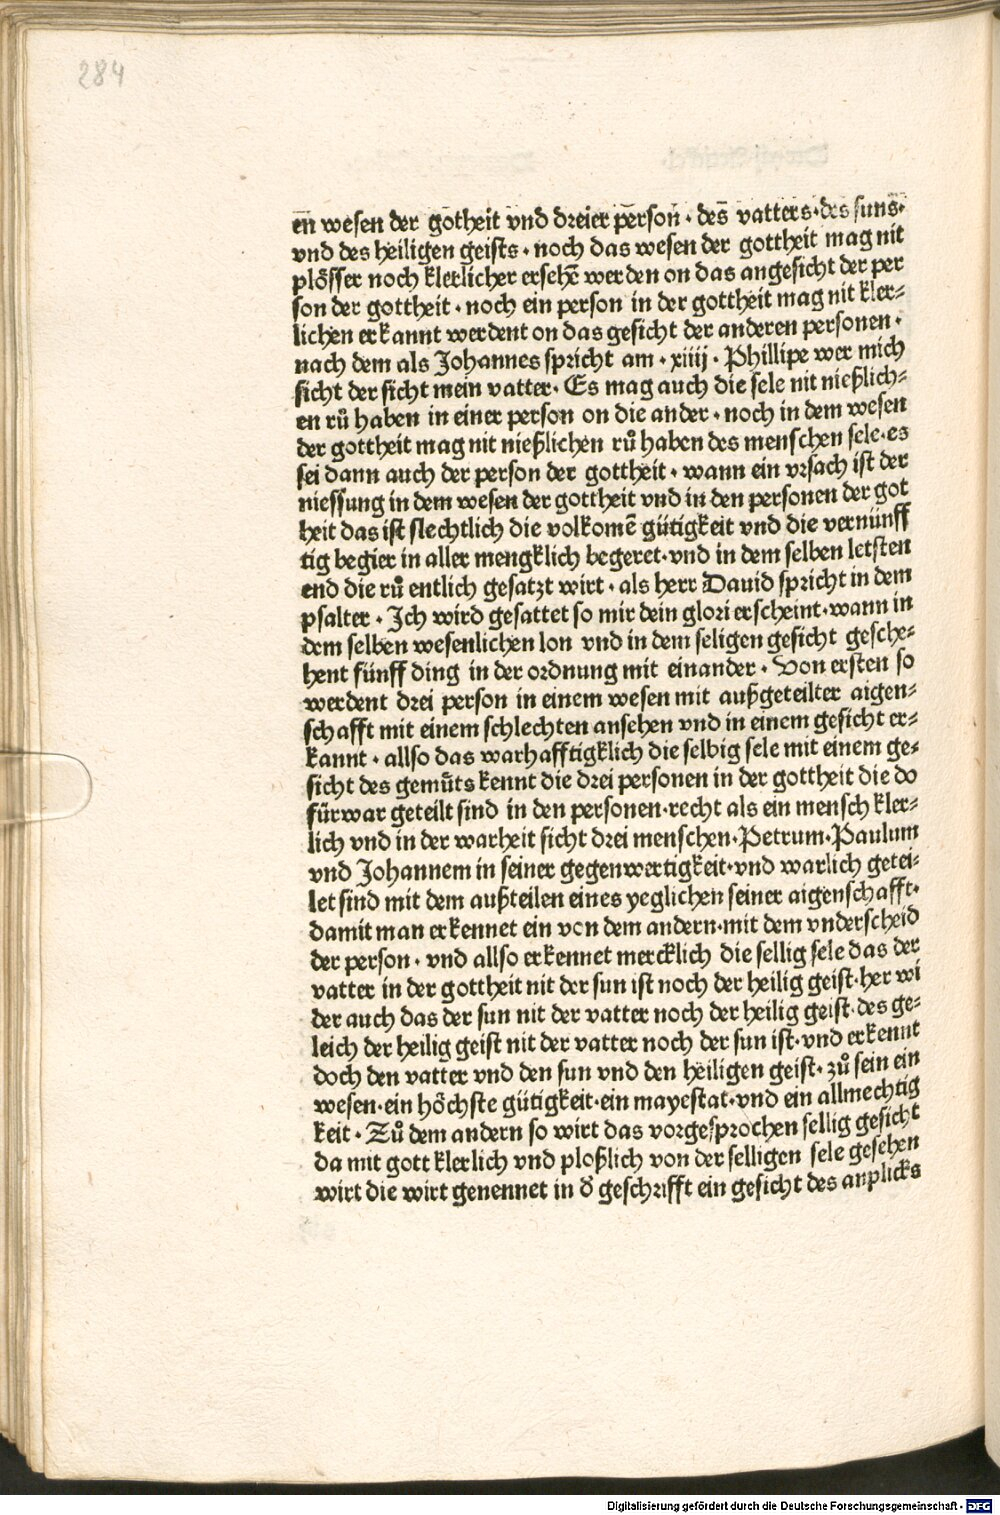 284
en̄ wesen der gotheit vnd dreier person · des vatters · des suns ·
vnd des heiligen geists · noch das wesen der gottheit mag nit
plösser noch klerlicher ersehē werden on das angesicht der per
son der gottheit · noch ein person in der gottheit mag nit kler⸗
lichen erkannt werdent on das gesicht der anderen personen ·
nach dem als Johannes spricht am · xiiij · Phillipe wer mich
sicht der sicht mein vatter · Es mag auch die sele nit nießlich⸗
en rů haben in einer person on die ander · noch in dem wesen
der gottheit mag nit nießlichen rů haben des menschen sele · es
sei dann auch der person der gottheit · wann ein vrsach ist der
niessung in dem wesen der gottheit vnd in den personen der got
heit das ist slechtlich die volkomē gütigkeit vnd die vernünff
tig begier in aller mengklich begeret · vnd in dem selben letsten
end die rů entlich gesatzt wirt · als herr Dauid spricht in dem
psalter · Ich wird gesattet so mir dein glori erscheint · wann in
dem selben wesenlichen lon vnd in dem seligen gesicht gesche⸗
hent fünff ding in der ordnung mit einander · Von ersten so
werdent drei person in einem wesen mit außgeteilter aigen⸗
schafft mit einem schlechten ansehen vnd in einem gesicht er⸗
kannt · allso das warhafftigklich die selbig sele mit einem ge⸗
sicht des gemüts kennt die drei personen in der gottheit die do
fürwar geteilt sind in den personen · recht als ein mensch kler⸗
lich vnd in der warheit sicht drei menschen · Petrum · Paulum
vnd Johannem in seiner gegenwertigkeit · vnd warlich getei⸗
let sind mit dem außteilen eines yeglichen seiner aigenschafft ·
damit man erkennet ein von dem andern · mit dem vnderscheid
der person · vnd allso erkennet mercklich die sellig sele das der
vatter in der gottheit nit der sun ist noch der heilig geist · her wi
der auch das der sun nit der vatter noch der heilig geist · des ge⸗
leich der heilig geist nit der vatter noch der sun ist · vnd erkennt
doch den vatter vnd den sun vnd den heiligen geist · zů sein ein
wesen · ein höchste gütigkeit · ein mayestat · vnd ein allmechtig
keit · Zů dem andern so wirt das vorgesprochen sellig gesicht
da mit gott klerlich vnd ploßlich von der selligen sele gesehen
wirt die wirt genennet in d̕ geschrifft ein gesicht des anplicks
Digitalisierung gefördert durch die Deutsche Forschungsgemeinschaft - DFG